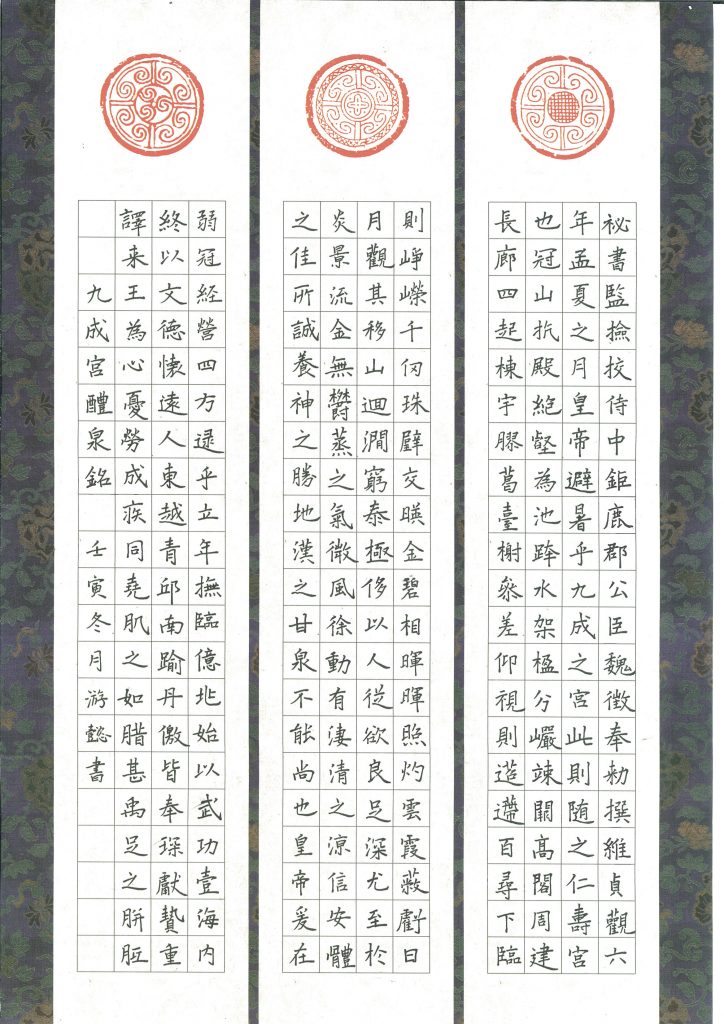 祕書監撿挍侍中鉅鹿郡公臣魏徵奉勑撰維貞觀六
年孟夏之月皇帝避暑乎九成之宮此則随之仁壽宮
也冠山抗殿絶壑為池跨水架楹分巖竦闕高閣周建
長廊四起棟宇膠葛臺榭叅差仰視則迢遰百尋下臨
則崢嶸千仞珠壁交暎金碧相暉暉照灼雲霞蔽虧日
月觀其移山迴澗窮泰極侈以人從欲良足深尤至於
炎景流金無欝蒸之氣微風徐動有淒清之涼信安體
之佳所誠養神之勝地漢之甘泉不能尚也皇帝爰在
弱冠経營四方逯乎立年撫臨億兆始以武功壹海内
終以文德懐遠人東越青邱南踰丹儌皆奉琛獻贄重
譯来王為心憂勞成疾同堯肌之如腊甚禹足之胼胝
九成宮醴泉銘 壬寅冬月游懿書